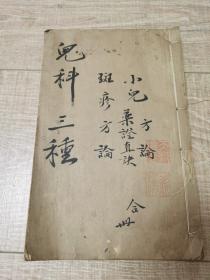 兒科三種
小兒方論
藥證真訣
斑疹方論
合冊